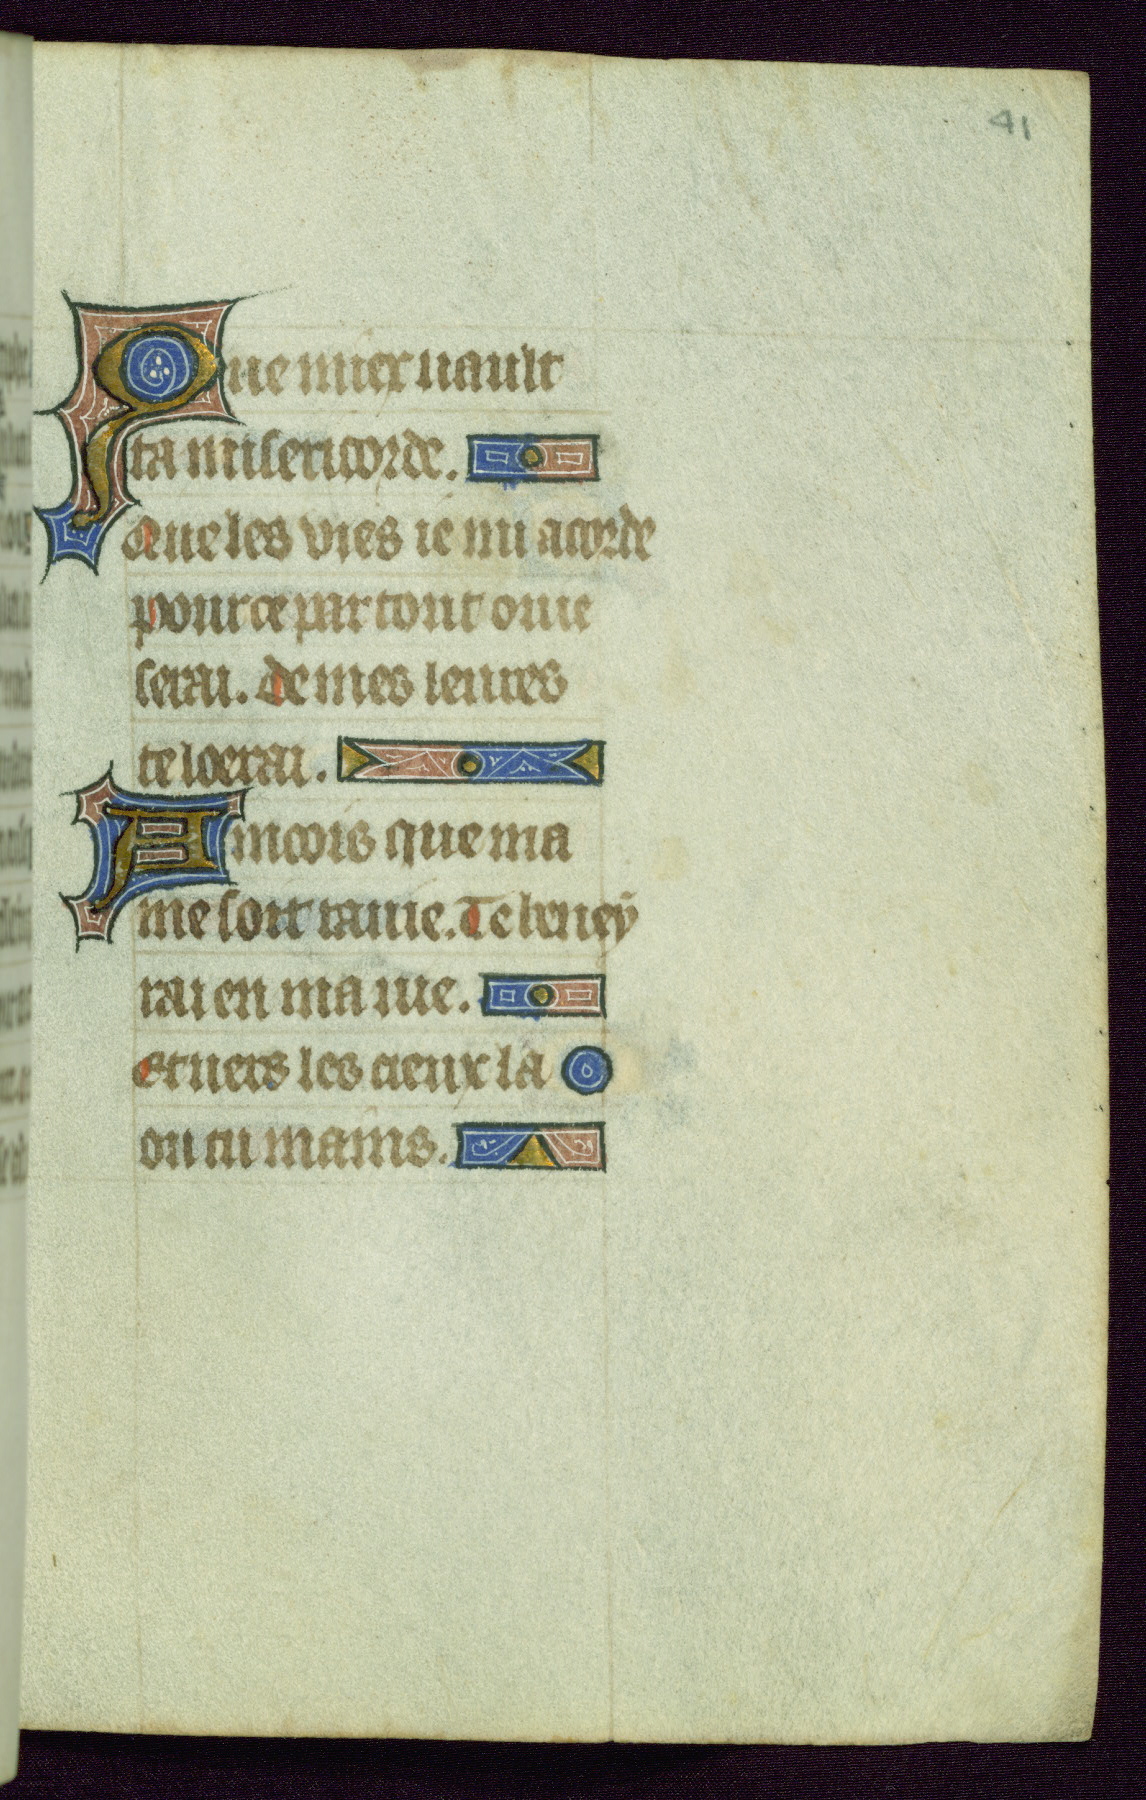 41
Que miex uault
ta misericorde.
Que les vies ie mi acorde
pour ce par tout ou ie
serai. De mes leures
te loerai.
Aincois que ma
me soit rauie. Te beney
rai en ma uie.
Et uers les cieux la
ou tu mains.